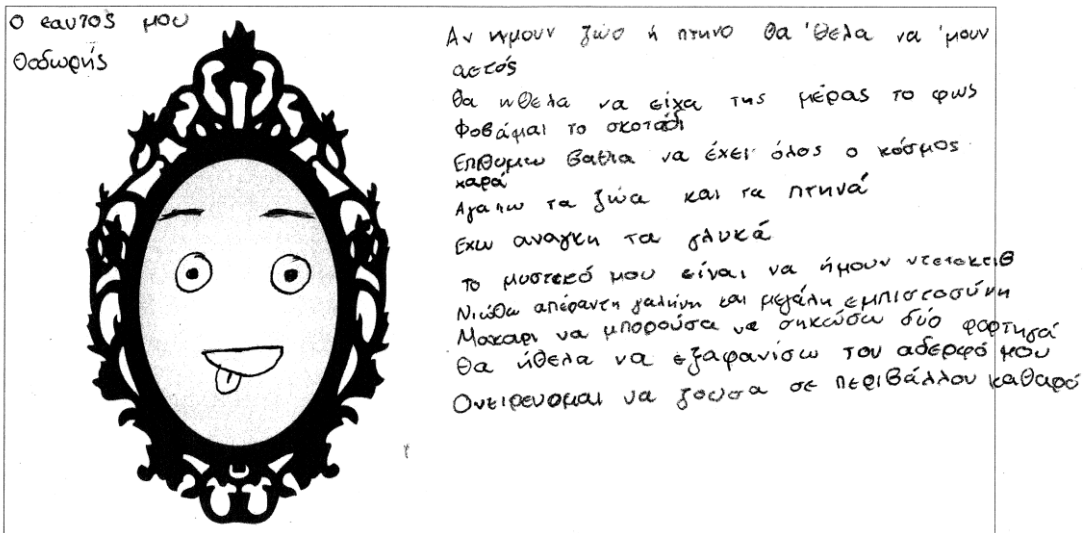 Ο εαυτος μου
Θοδωρής
Αν ημουν ζώο ή πτηνο θα 'θελα να 'μουν
αετός
θα ηθελα να είχα της μέρας το φως
Φοβάμαι το σκοτάδι
Επιθυμω βαθια να έχει όλος ο κόσμος
χαρά
Αγαπω τα ζώα και τα πτηνά
Εχω αναγκη τα γλυκά
Το μυστεκό μου είναι να ήμουν ντετεκτιβ
Νιώθω απέραντη γαλήνη και μεγάλη εμπιστοσύνη
Μακαρι να μπορούσα να σηκώσω δύο φορτηγά
Θα ήθελα να εξαφανίσω τον αδερφό μου
Ονειρευομαι να ζουσα σε περιβάλλον καθαρό